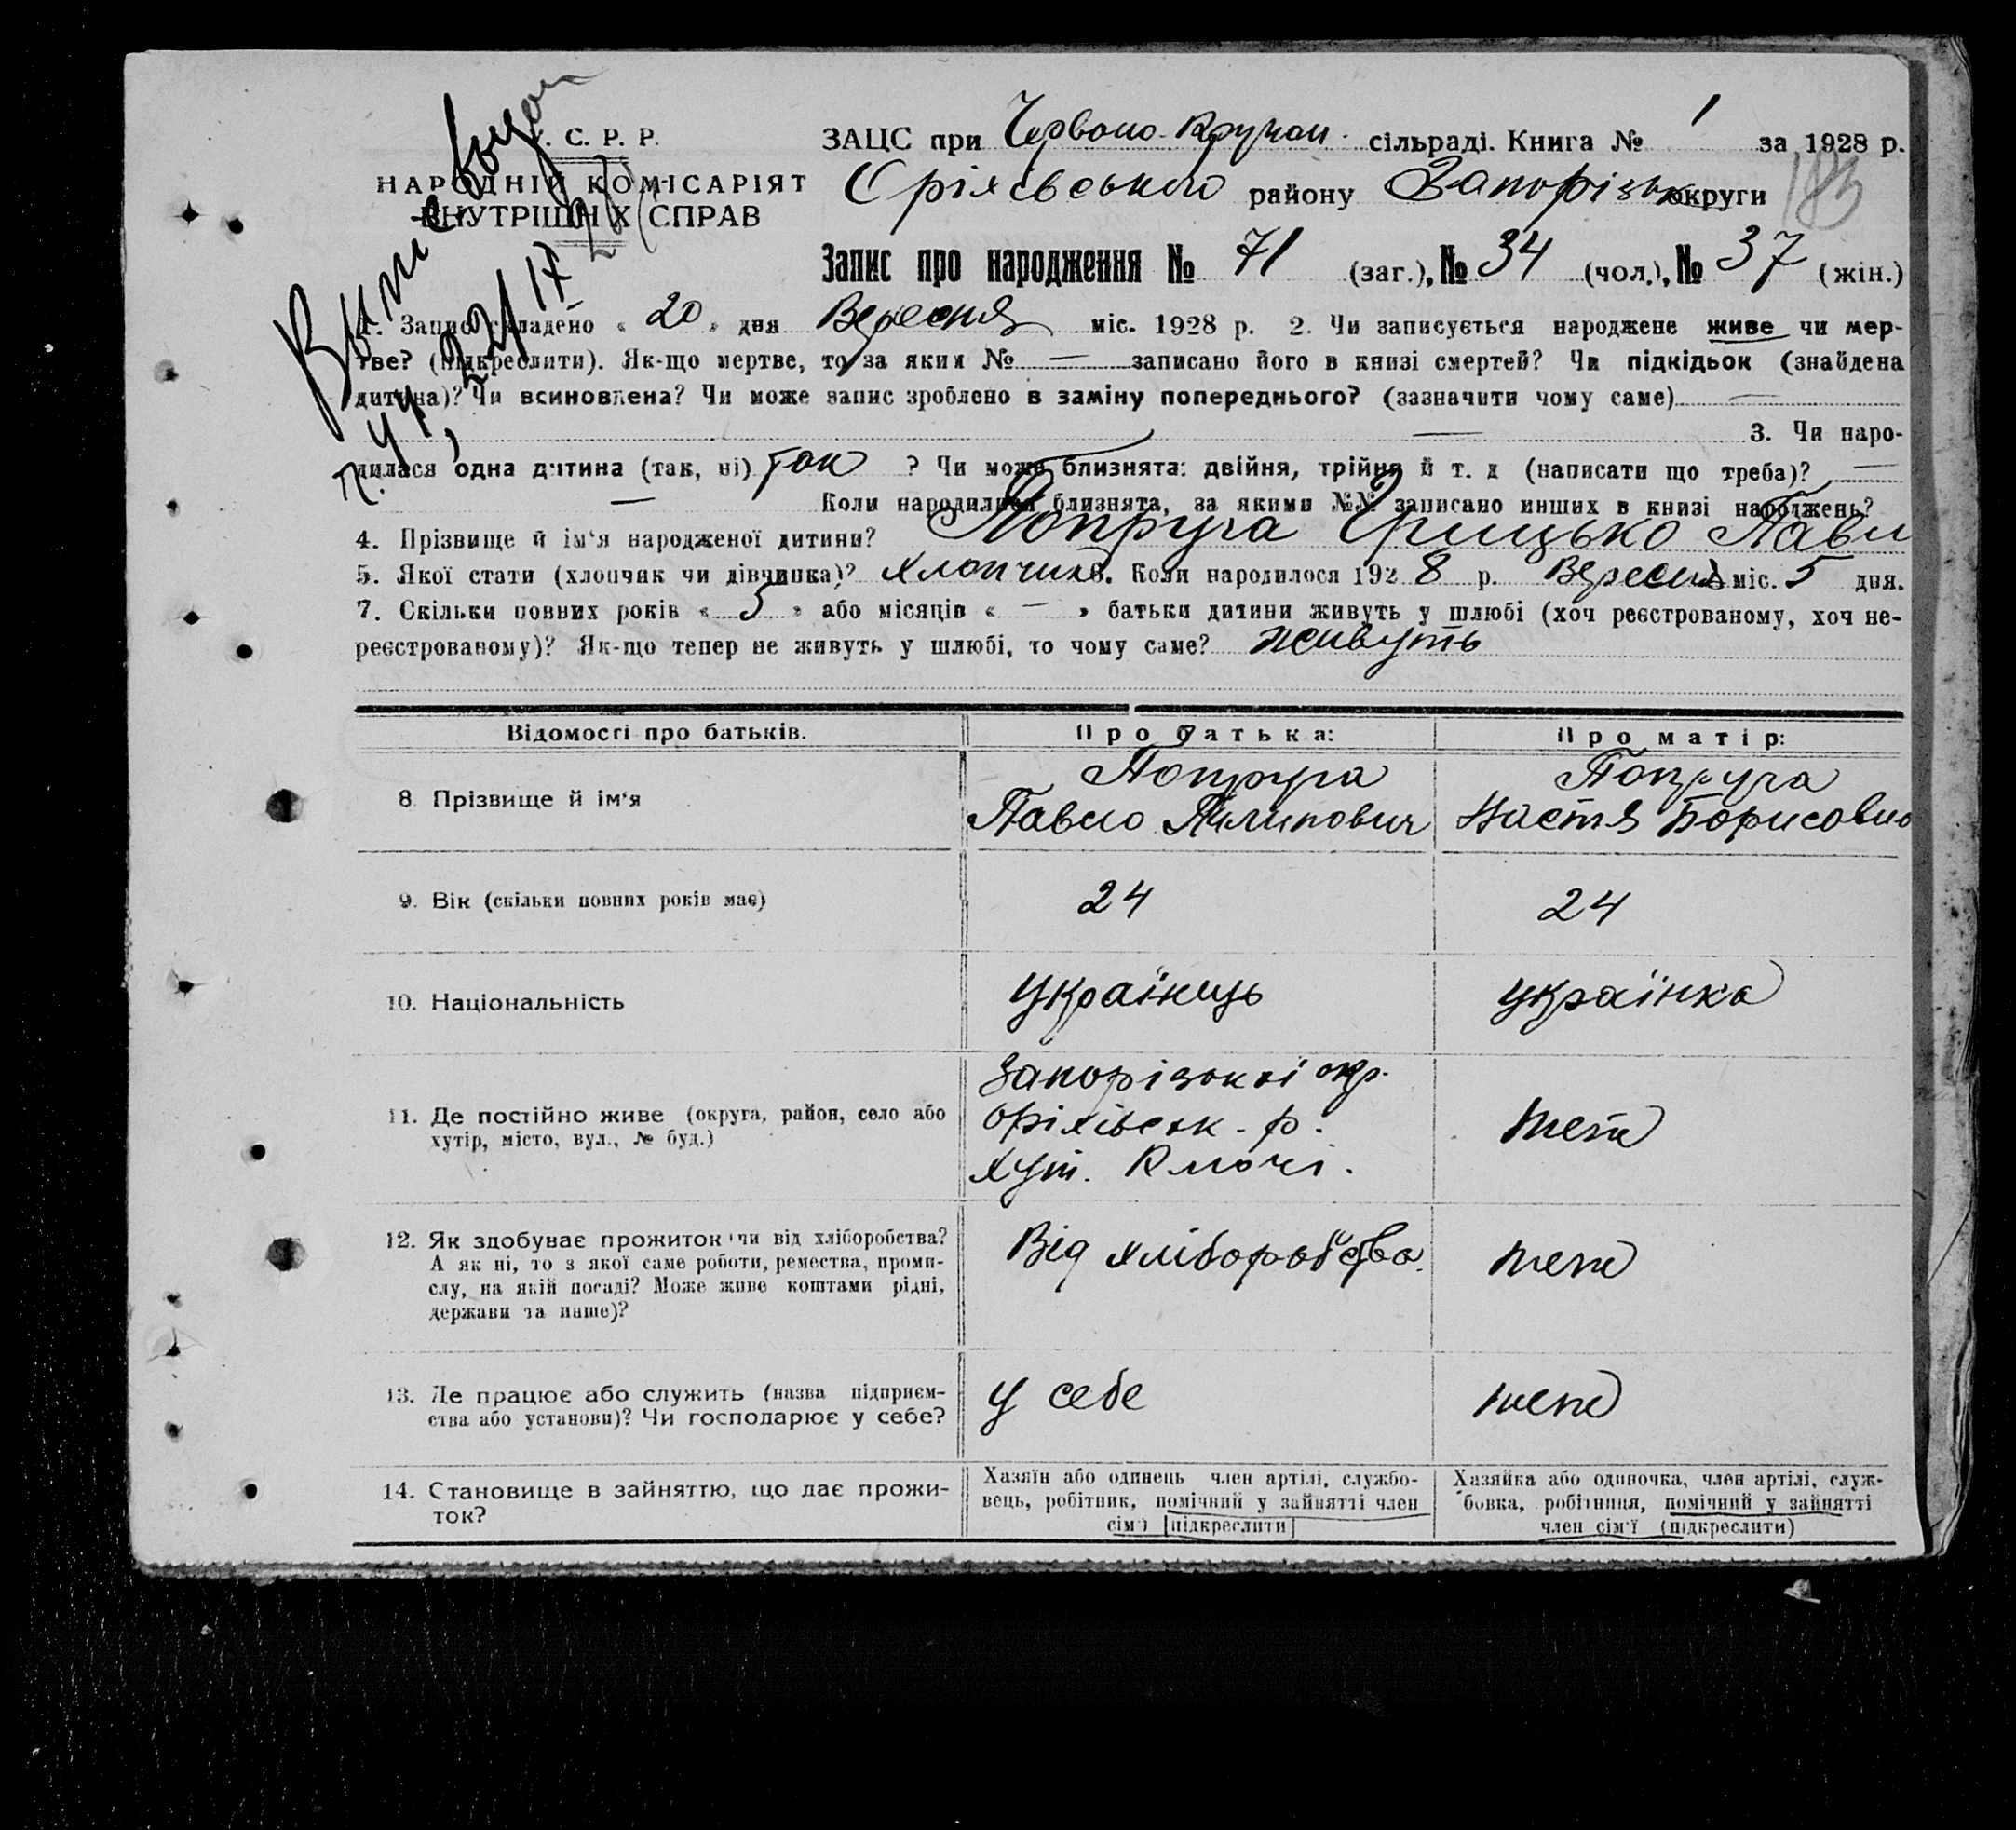 С. Р. Р.
НАРОДНІЙ КОМІСАРІЯТ
ВНУТРІШНІХ СПРАВ
ЗАЦС при Червоно- сільраді. Книга № 1 за 1928 р.
Оріхівського району Запорізьк округи
183
Запис про народження № 71 (заг.), № 34 (чол.), № 37 (жін.)
1. Запис складено « 20 » дня Вересня міс. 1928 р. 2. Чи записується народжене живе чи мер-
тве? (підкреслити). Як-що мертве, то за яким № — записано його в книзі смертей? Чи підкідьок (знайдена
дитина)? Чи всиновлена? Чи може запис зроблено в заміну попереднього? (зазначити чому саме) —
— 3. Чи наро-
дилася одна дитина (так, ні) так ? Чи може близнята: двійня, трійня й т. д (написати що треба)? —
— Коли народилися близнята, за якими №№ записано инших в книзі народжень?
4. Прізвище й ім'я народженої дитини? Попруга Грицько Павл
5. Якої стати (хлопчик чи дівчинка)? хлопчик 6. Коли народилося 1928 р. Вересня міс. 5 дня.
7. Скільки повних років « 5 » або місяців « — » батьки дитини живуть у шлюбі (хоч реєстрованому, хоч не-
реєстрованому)? Як-що тепер не живуть у шлюбі, то чому саме? живуть
Відомості про батьків. Про батька: Про матір:
8. Прізвище й ім'я Попруга Павло Пилипович Попруга Настя Борисовна
9. Вік (скільки повних років має) 24 24
10. Національність Українець українка
11. Де постійно живе (округа, район, село або
хутір, місто, вул., № буд.)
Запорізької окр.
Оріхівськ. р.
хут. Ключі.
теж
12. Як здобуває прожиток чи від хліборобства?
А як ні, то з якої саме роботи, ремества, проми-
слу, на якій посаді? Може живе коштами рідні,
держави та инше)?
Від хліборобства
теж
13. Де працює або служить (назва підприєм-
ства або установи)? Чи господарює у себе?
у себе
теж
14. Становище в зайняттю, що дає прожи-
ток?
Хазяїн або одинець член артілі, службо-
вець, робітник, помічний у зайнятті член
сім'ї [підкреслити]
Хазяйка або одиночка, член артілі, служ-
бовка, робітниця, помічний у зайнятті
член сім'ї (підкреслити)